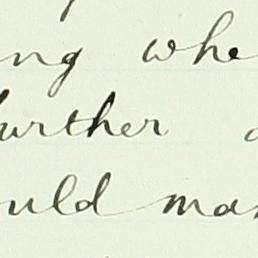 ng whe
further a
uld ma